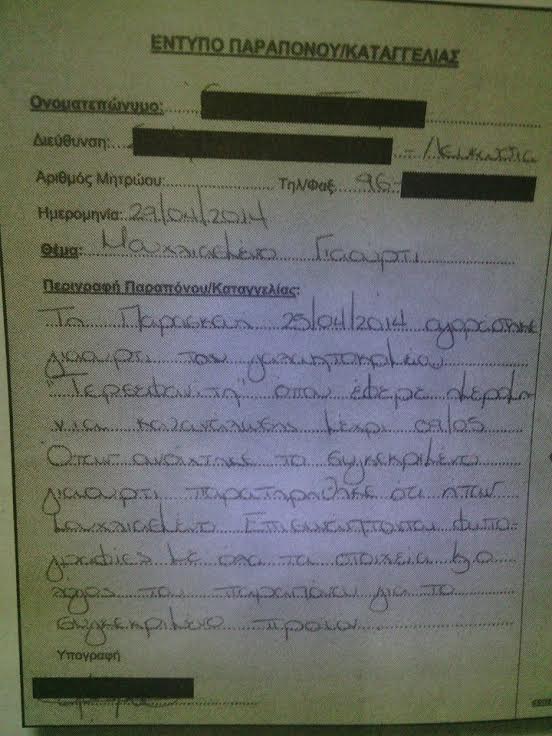 ΕΝΤΥΠΟ ΠΑΡΑΠΟΝΟΥ/ΚΑΤΑΓΓΕΛΙΑΣ
Ονοματεπώνυμο:
Διεύθυνση: - Λευκωσία
Αριθμός Μητρώου: Τηλ/Φαξ. 96-
Ημερομηνία: 29/04/2014
Θέμα: Μουχλιασμένο Γιαούρτι
Περιγραφή Παραπόνου/Καταγγελίας:
Τη Παρασκευή 25/04/2014 αγοράστηκε
γιαούρτι του γαλακτοκομείου
"Τερσεφανίτη" όπου έφερε ημερομη-
νια κατανάλωσης μέχρι 09/05
Όταν ανοίχτηκε το συγκεκριμένο
γιαούρτι παρατηρήθηκε ότι ήταν
μουχλιασμένο Επισυνάπτονται φωτο-
γραφίες με όλα τα στοιχεία
του παραπόνου για το
συγκεκριμένο προϊόν.
Υπογραφή